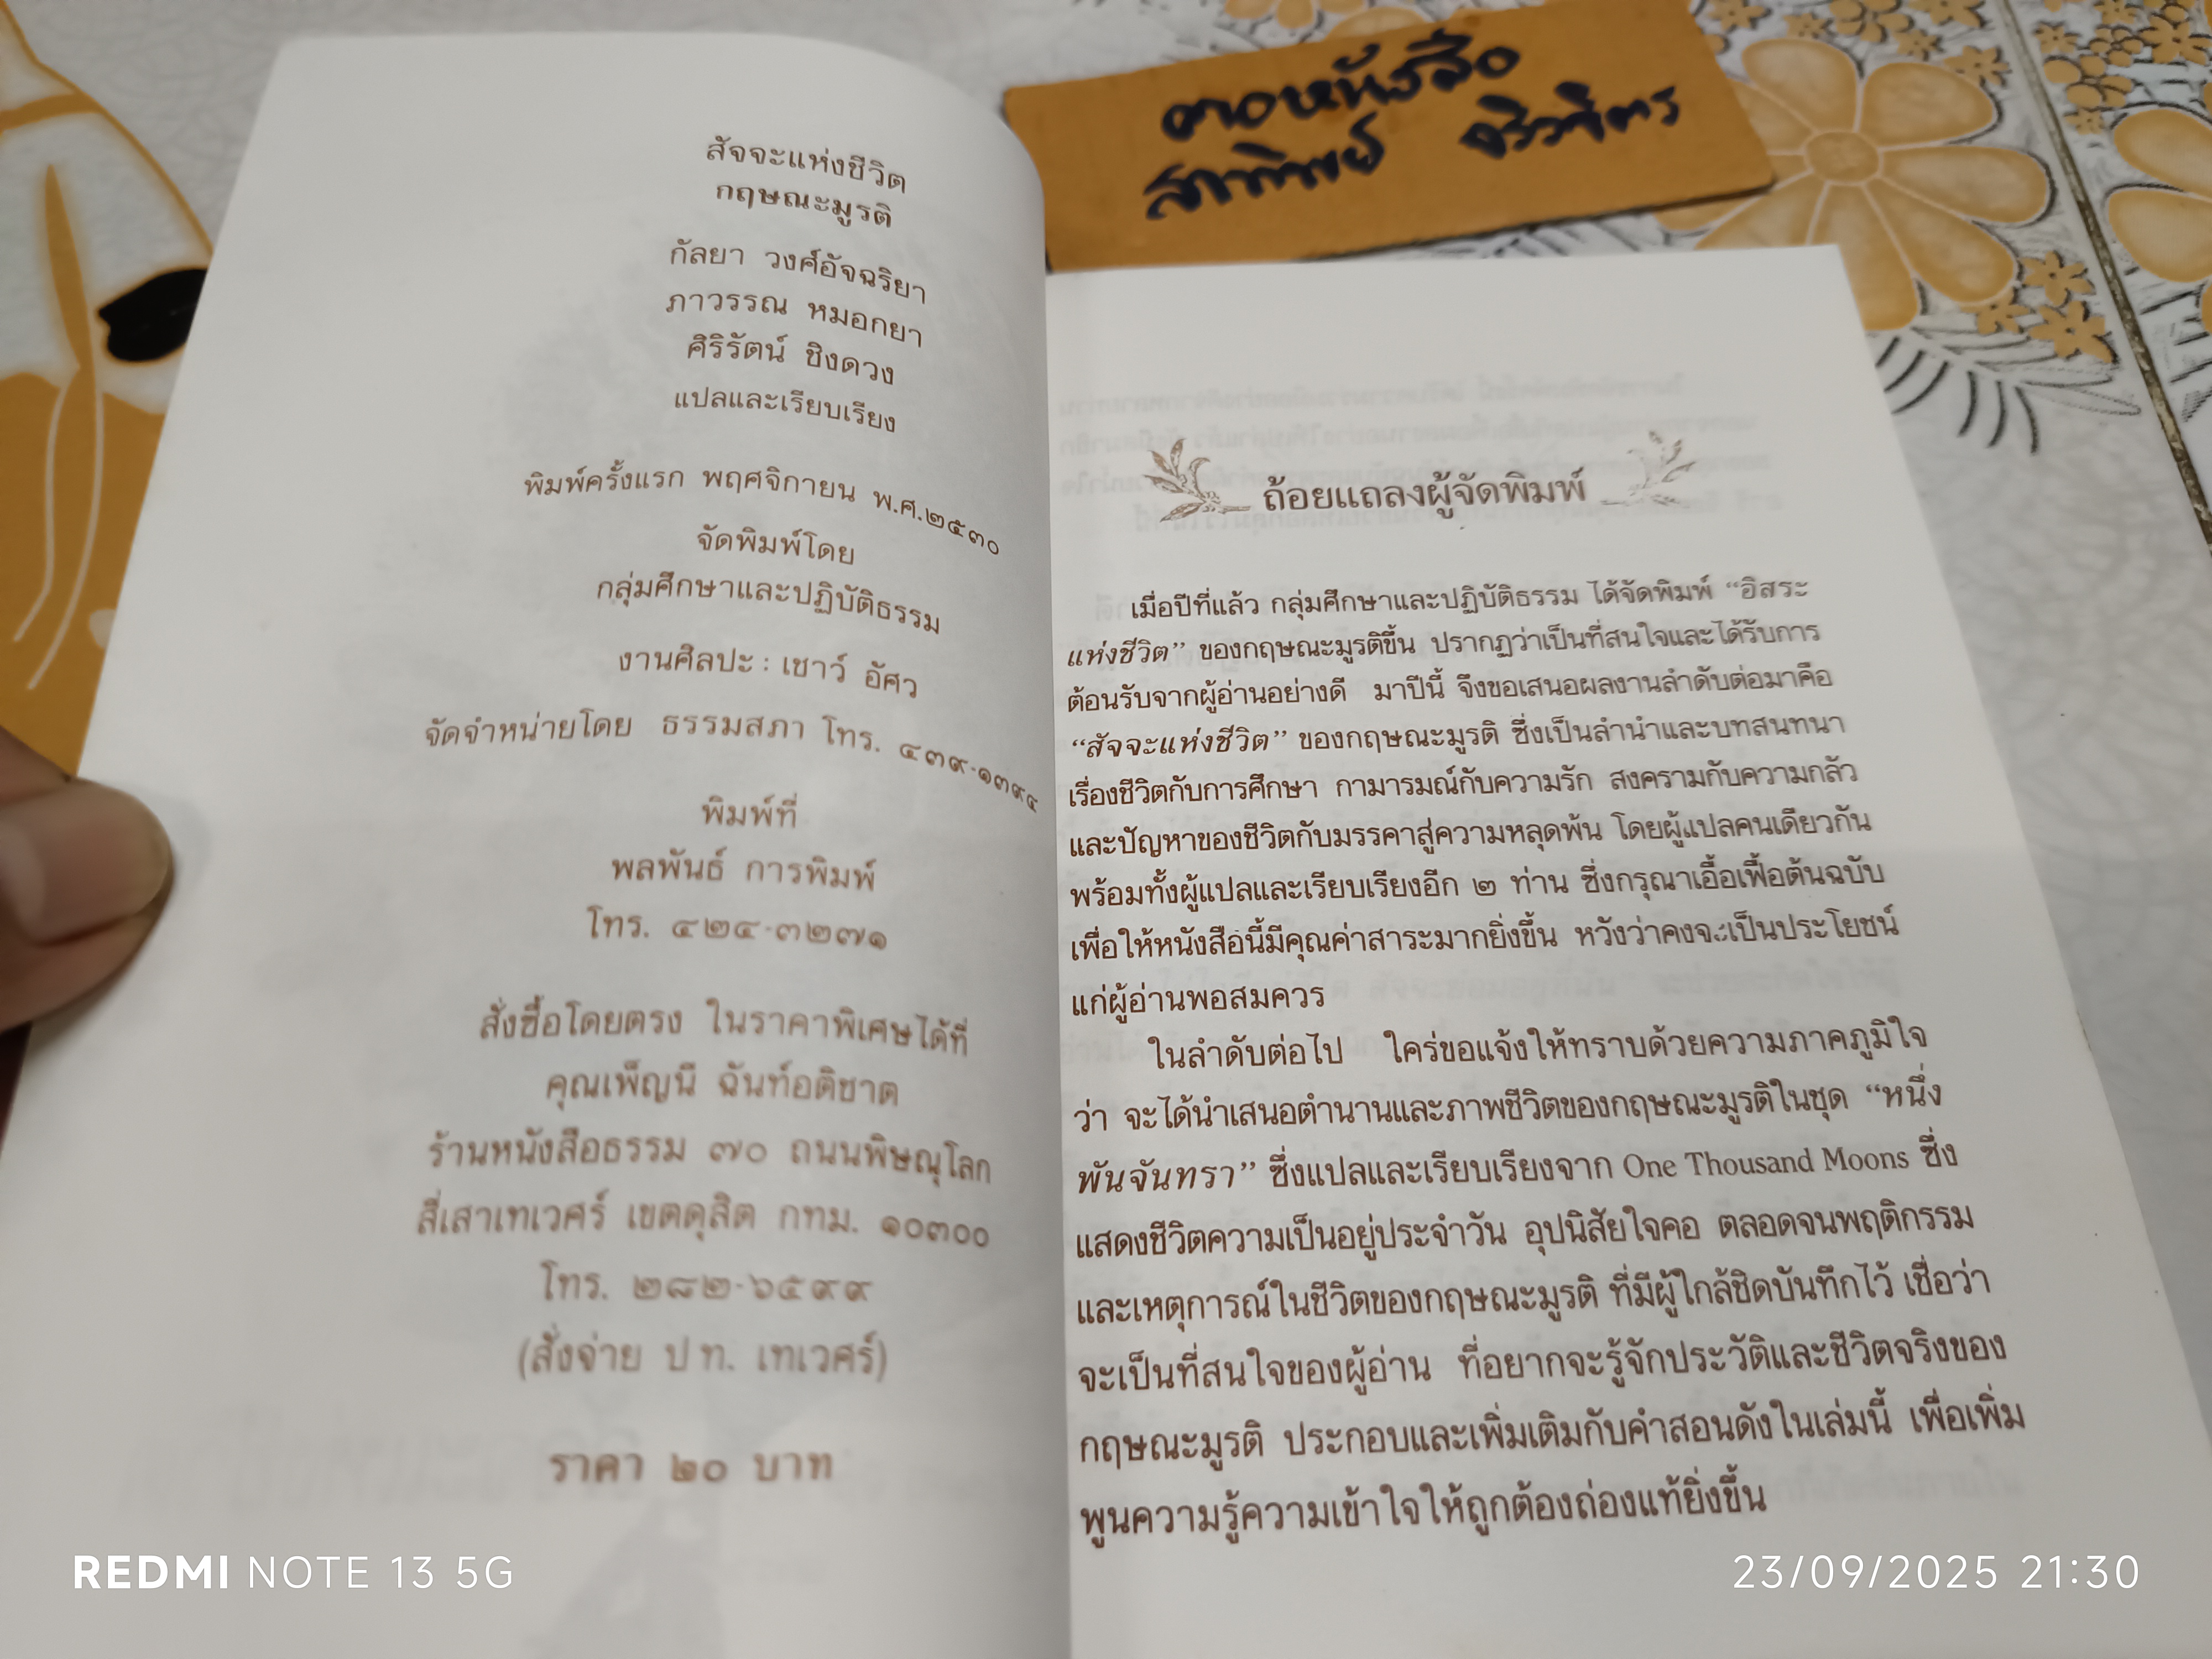 สัจจะแห่งชีวิต
กฤษณะมูรติ
กัลยา วงศ์อัจฉริยา
ภาวรรณ หมอกยา
ศิริรัตน์ ชิงดวง
แปลและเรียบเรียง
พิมพ์ครั้งแรก พฤศจิกายน พ.ศ.๒๕๓๐
จัดพิมพ์โดย
กลุ่มศึกษาและปฏิบัติธรรม
งานศิลปะ : เชาว์ อัศว
จัดจำหน่ายโดย ธรรมสภา โทร. ๔๓๙-๑๓๙๔
พิมพ์ที่
พลพันธ์ การพิมพ์
โทร. ๔๒๔-๓๒๗๑
สั่งซื้อโดยตรง ในราคาพิเศษได้ที่
คุณเพ็ญนี ฉันท์อติชาต
ร้านหนังสือธรรม ๗๐ ถนนพิษณุโลก
สี่เสาเทเวศร์ เขตดุสิต กทม. ๑๐๓๐๐
โทร. ๒๘๒-๖๕๙๙
(สั่งจ่าย ป ท. เทเวศร์)
ราคา ๒๐ บาท
ถ้อยแถลงผู้จัดพิมพ์
เมื่อปีที่แล้ว กลุ่มศึกษาและปฏิบัติธรรม ได้จัดพิมพ์ “อิสระ
แห่งชีวิต” ของกฤษณะมูรติขึ้น ปรากฏว่าเป็นที่สนใจและได้รับการ
ต้อนรับจากผู้อ่านอย่างดี มาปีนี้ จึงขอเสนอผลงานลำดับต่อมาคือ
“สัจจะแห่งชีวิต” ของกฤษณะมูรติ ซึ่งเป็นลำนำและบทสนทนา
เรื่องชีวิตกับการศึกษา กามารมณ์กับความรัก สงครามกับความกลัว
และปัญหาของชีวิตกับมรรคาสู่ความหลุดพ้น โดยผู้แปลคนเดียวกัน
พร้อมทั้งผู้แปลและเรียบเรียงอีก ๒ ท่าน ซึ่งกรุณาเอื้อเฟื้อต้นฉบับ
เพื่อให้หนังสือนี้มีคุณค่าสาระมากยิ่งขึ้น หวังว่าคงจะเป็นประโยชน์
แก่ผู้อ่านพอสมควร
ในลำดับต่อไป ใคร่ขอแจ้งให้ทราบด้วยความภาคภูมิใจ
ว่า จะได้นำเสนอตำนานและภาพชีวิตของกฤษณะมูรติในชุด “หนึ่ง
พันจันทรา” ซึ่งแปลและเรียบเรียงจาก One Thousand Moons ซึ่ง
แสดงชีวิตความเป็นอยู่ประจำวัน อุปนิสัยใจคอ ตลอดจนพฤติกรรม
และเหตุการณ์ในชีวิตของกฤษณะมูรติ ที่มีผู้ใกล้ชิดบันทึกไว้ เชื่อว่า
จะเป็นที่สนใจของผู้อ่าน ที่อยากจะรู้จักประวัติและชีวิตจริงของ
กฤษณะมูรติ ประกอบและเพิ่มเติมกับคำสอนดังในเล่มนี้ เพื่อเพิ่ม
พูนความรู้ความเข้าใจให้ถูกต้องถ่องแท้ยิ่งขึ้น
REDMI NOTE 13 5G
23/09/2025 21:30